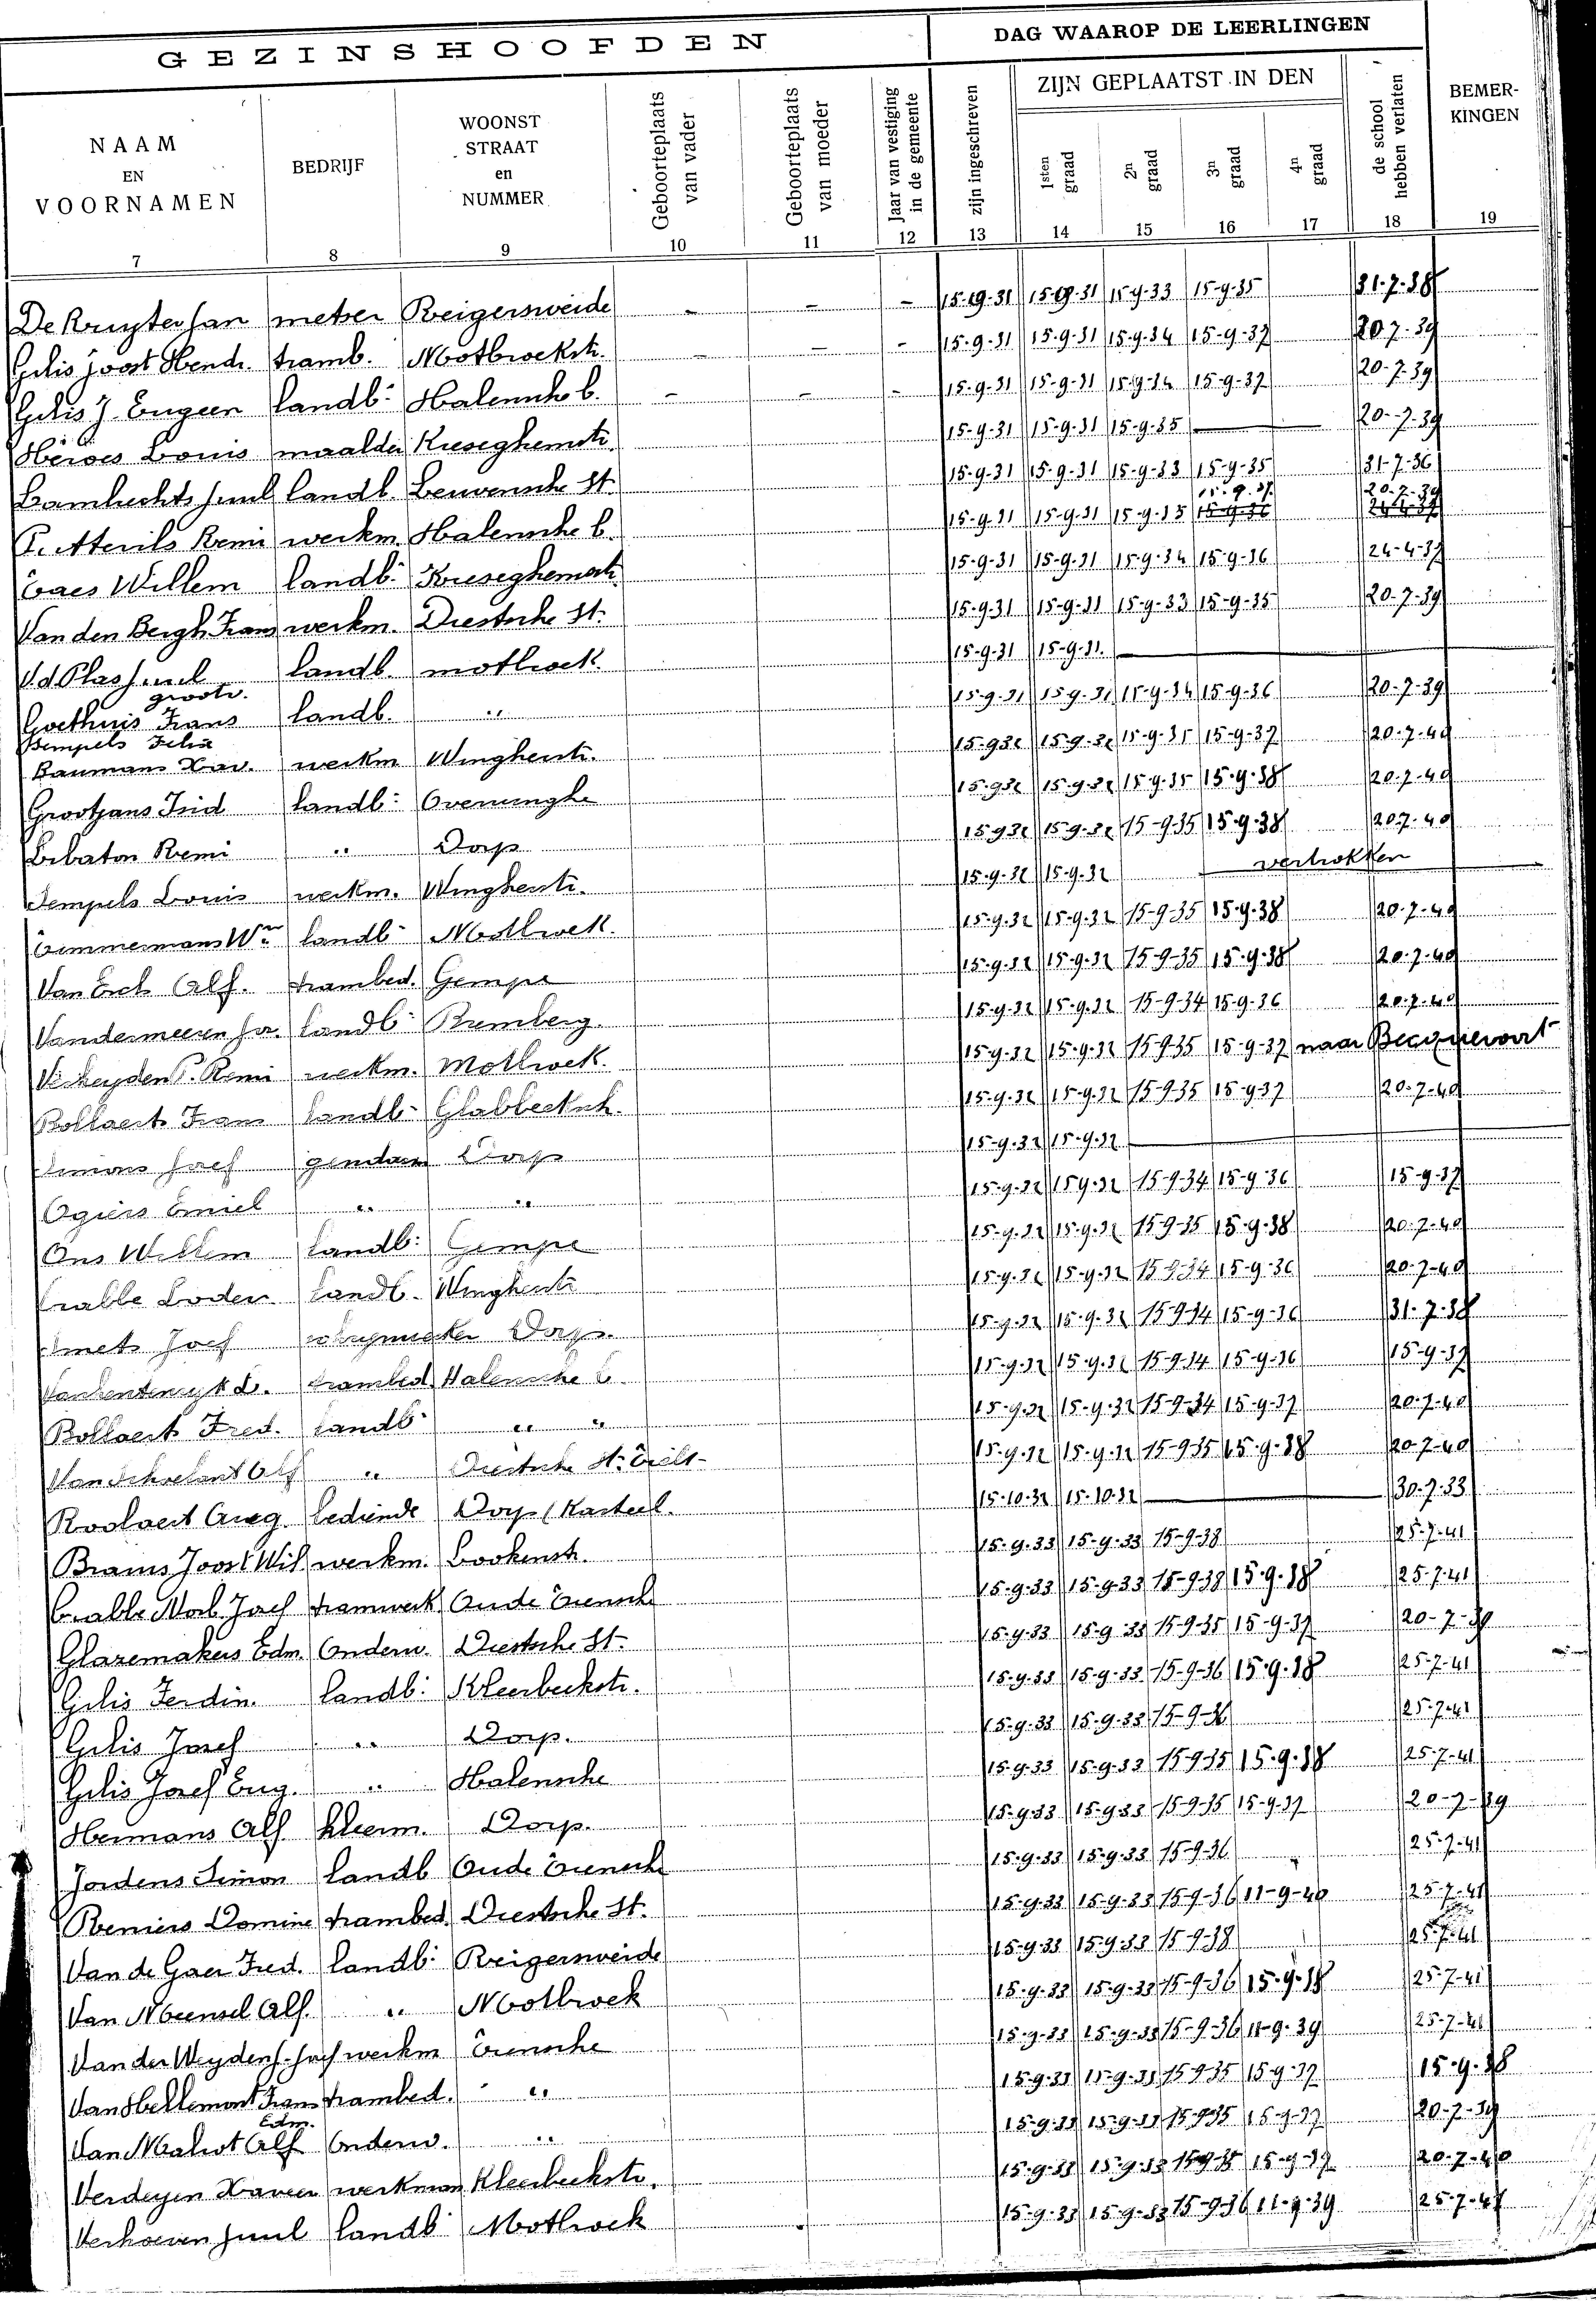 GEZINSHOOFDEN DAG WAAROP DE LEERLINGEN
NAAM EN VOORNAMEN BEDRIJF WOONST STRAAT en NUMMER Geboorteplaats van vader Geboorteplaats van moeder Jaar van vestiging in de gemeente zijn ingeschreven ZIJN GEPLAATST IN DEN 1sten graad 2n graad 3n graad 4n graad de school hebben verlaten BEMER-KINGEN
7 8 9 10 11 12 13 14 15 16 17 18 19
De Kruyter Jan metser Reigersweide - - - 15-19-31 15-19-31 15-9-33 15-9-35 31-7-38
Gilis Joost Hendr. tramb. Motbroekstr. - - - 15-9-31 15-9-31 15-9-34 15-9-37 20-7-39
Gilis J. Eugeen landb: Halensche b. - - - 15-9-31 15-9-31 15-9-34 15-9-37 20-7-39
Héroes Louis maalder Kieseghemstr. 15-9-31 15-9-31 15-9-35 — 20-7-39
Lambrechts Juul landb. Leuvensche St. 15-9-31 15-9-31 15-9-33 15-9-35 31-7-36
15.9.37. 20-7-39
Remi werkm. Halensche b. 15-9-31 15-9-31 15-9-35 15-9-36 24-4-37
Claes Willem landb: Kieseghemstr. 15-9-31 15-9-31 15-9-34 15-9-36 24-4-37
Van den Bergh Frans werkm. Diestsche St. 15-9-31 15-9-31 15-9-33 15-9-35 20-7-39
V.d Plas Juul landb. motbroek. 15-9-31 15-9-31. —
grootv.
Goethuis Frans landb. " 15-9-31 15-9-31 15-9-34 15-9-36 20-7-39
Sempels Felix
Baumans Xav. werkm Winghestr. 15-9-32 15-9-32 15-9-35 15-9-37 20-7-40
Grootjans Isid landb: Overwinghe 15-9-32 15-9-32 15-9-35 15-9-38 20-7-40
Lebaton Remi " Dorp 15-9-32 15-9-32 15-9-35 15-9-38 20-7-40
Sempels Louis werkm. Winghestr. 15-9-32 15-9-32 vertrokken
Timmermans Wm landb: Motbroek. 15-9-32 15-9-32 15-9-35 15-9-38 20-7-40
Van Esch Alf. trambed. Gempe 15-9-32 15-9-32 15-9-35 15-9-38 20-7-40
Vandermeeren Jos. landb: Remberg. 15-9-32 15-9-32 15-9-34 15-9-36 20-7-40
Verheyden P. Remi werkm. Motbroek. 15-9-32 15-9-32 15-9-35 15-9-37 naar Becquevoort
Bollaerts Frans landb: Glabbeeksch. 15-9-32 15-9-32 15-9-35 15-9-37 20-7-40
Simons Josef gendarm Dorp 15-9-32 15-9-32 —
Ogiers Emiel " " 15-9-32 15-9-32 15-9-34 15-9-36 15-9-37
Ons Willem landb: Gempe 15-9-32 15-9-32 15-9-35 15-9-38 20-7-40
Crabbe Loder. landb. Winghestr 15-9-32 15-9-32 15-9-34 15-9-36 20-7-40
Smets Josef Dorp. 15-9-32 15-9-32 15-9-34 15-9-36 31-7-38
trambed Halensche b. 15-9-32 15-9-32 15-9-34 15-9-36 15-9-37
Bollaerts Fred. landb: " " 15-9-32 15-9-32 15-9-34 15-9-37 20-7-40
Alf " Diestsche St. Tielt- 15-9-32 15-9-32 15-9-35 15-9-38 20-7-40
Roolaert Aug. bediende Dorp (Kasteel. 15-10-32 15-10-32 — 30-7-33
Brams Joost Wil werkm. Bookenstr. 15-9-33 15-9-33 15-9-38 25-7-41
Crabbe Norb. Josef tramwerk. Oude Tiensche 15-9-33 15-9-33 15-9-38 15-9-38 25-7-41
Glazemakers Edm. Onderw. Diestsche St. 15-9-33 15-9-33 15-9-35 15-9-37 20-7-39
Gilis Ferdin. landb: Kleerbeekstr. 15-9-33 15-9-33 15-9-36 15-9-38 25-7-41
Gilis Josef " Dorp. 15-9-33 15-9-33 15-9-36 25-7-41
Gilis Josef Eug. " Halensche 15-9-33 15-9-33 15-9-35 15-9-38 25-7-41
Hermans Alf. kleerm. Dorp. 15-9-33 15-9-33 15-9-35 15-9-37 20-7-39
Jordens Simon landb Oude Tiensche 15-9-33 15-9-33 15-9-36 25-7-41
Reniers Domine trambed. Diestsche St. 15-9-33 15-9-33 15-9-36 11-9-40 25-7-41
Van de Gaer Fred. landb: Reigersweide 15-9-33 15-9-33 15-9-38 25-7-41
Van Meensel Alf. " Motbroek 15-9-33 15-9-33 15-9-36 15-9-38 25-7-41
Van der Weyden J. Josef werkm Tiensche 15-9-33 15-9-33 15-9-36 11-9-39 25-7-41
Van Hellemont Frans trambed. " 15-9-33 15-9-33 15-9-35 15-9-37 15-9-38
Edm.
Van Malcot Alf Onderw. " 15-9-33 15-9-33 15-9-35 15-9-37 20-7-39
Verdeyen Xaveer werkman Kleerbeekstr. 15-9-33 15-9-33 15-9-35 15-9-37 20-7-40
Verhoeven Juul landb: Motbroek 15-9-33 15-9-33 15-9-36 11-9-39 25-7-41